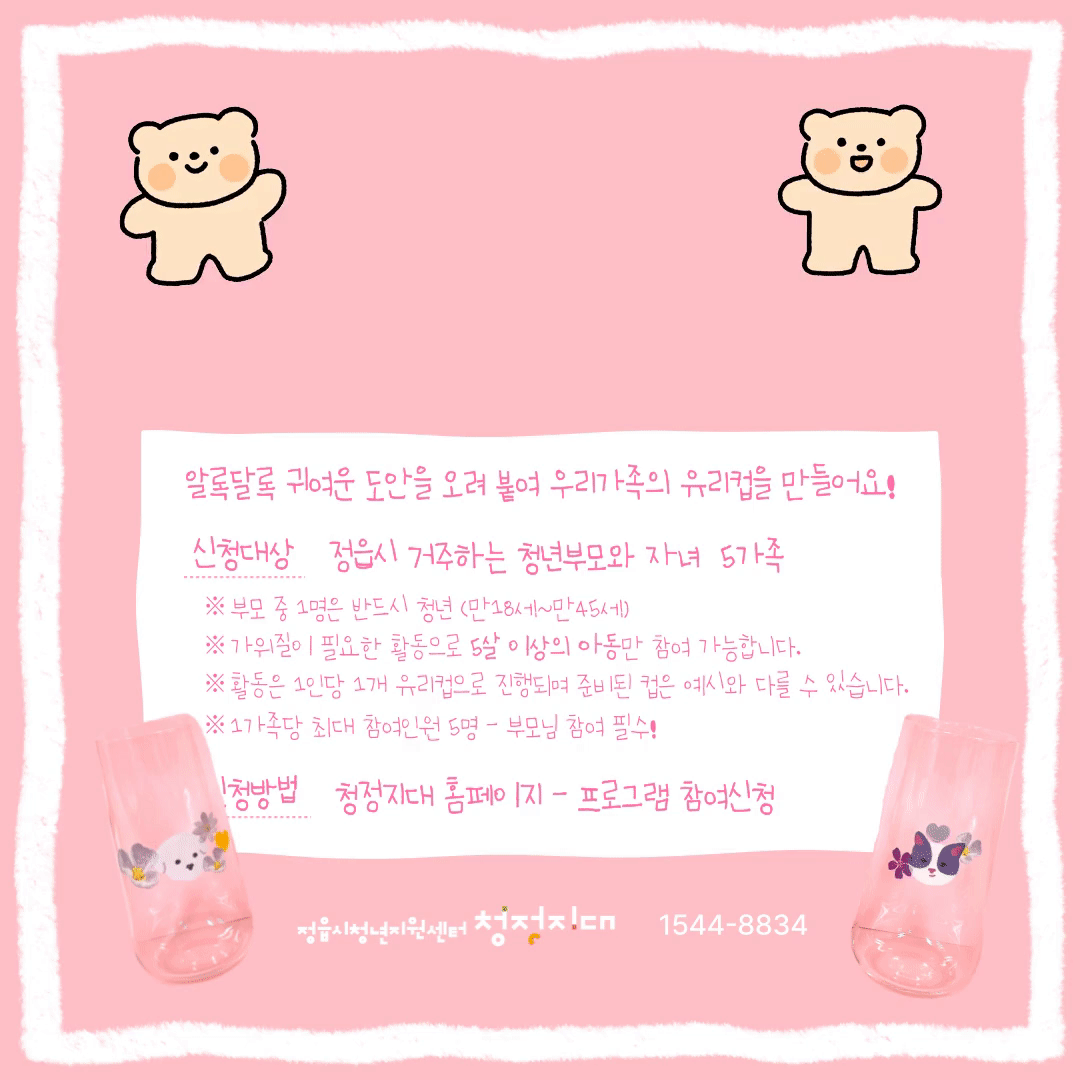 알록달록 귀여운 도안을 오려 붙여 우리가족의 유리컵을 만들어요!
신청대상 정읍시 거주하는 청년부모와 자녀 5가족
※ 부모 중 1명은 반드시 청년 (만18세~만45세)
※ 가위질이 필요한 활동으로 5살 이상의 아동만 참여 가능합니다.
※ 활동은 1인당 1개 유리컵으로 진행되며 준비된 컵은 예시와 다를 수 있습니다.
※ 1가족당 최대 참여인원 5명 - 부모님 참여 필수!
신청방법 청정지대 홈페이지 - 프로그램 참여신청
정읍시청년지원센터 청정지대 1544-8834